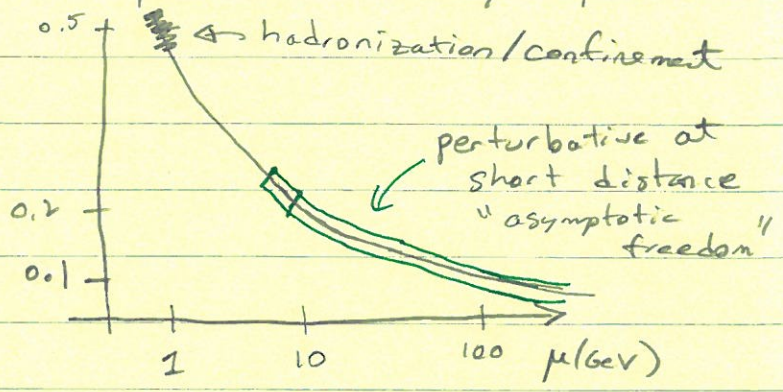 0.5
hadronization/confinement
perturbative at
short distance
"asymptotic
freedom"
0.2
0.1
1 10 100 μ(GeV)